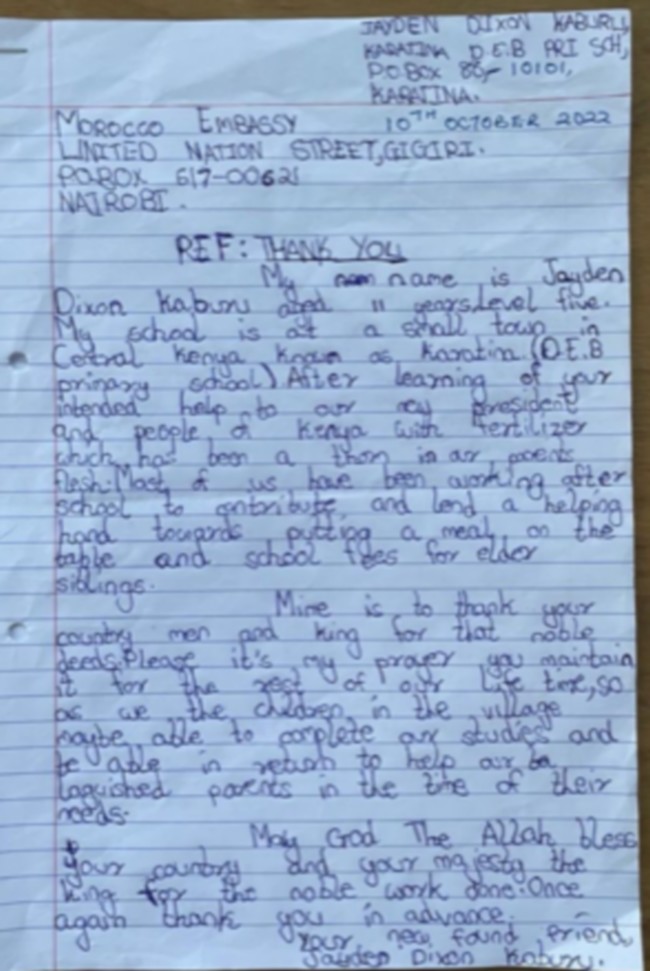 JAYDEN DIXON KABURU,
KARATINA D.E.B PRI SCH,
P.O.BOX 86,- 10101,
KARATINA.
MOROCCO EMBASSY 10TH OCTOBER 2022
UNITED NATION STREET,GIGIRI.
P.O.BOX 617-00621
NAIROBI.
REF: THANK YOU
My name is Jayden
Dixon Kaburu aged 11 years,level five.
My school is at a small town in
Central Kenya known as Karatina (D.E.B
primary school) After learning of your
intended help to our president
and people of Kenya with fertilizer
which has been a thorn in our parents
flesh.Most of us have been working after
school to contribute and lend a helping
hand towards putting a meal on the
table and school fees for elder
siblings.
Mine is to thank your
country men and king for that noble
deeds.Please it's my prayer you maintain
it for the rest of our life time,so
as we the children in the village
maybe able to complete our studies and
be able in return to help our
parents in the time of their
needs.
May God The Allah bless
your country and your majesty the
king for the noble work done.Once
again thank you in advance.
Your new found friend,
Jayden Dixon Kaburu.